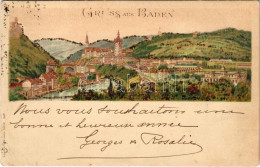 GRUSS aus BADEN
Nous vous souhaitons une
bonne et heureuse année
Georges & Rosalie